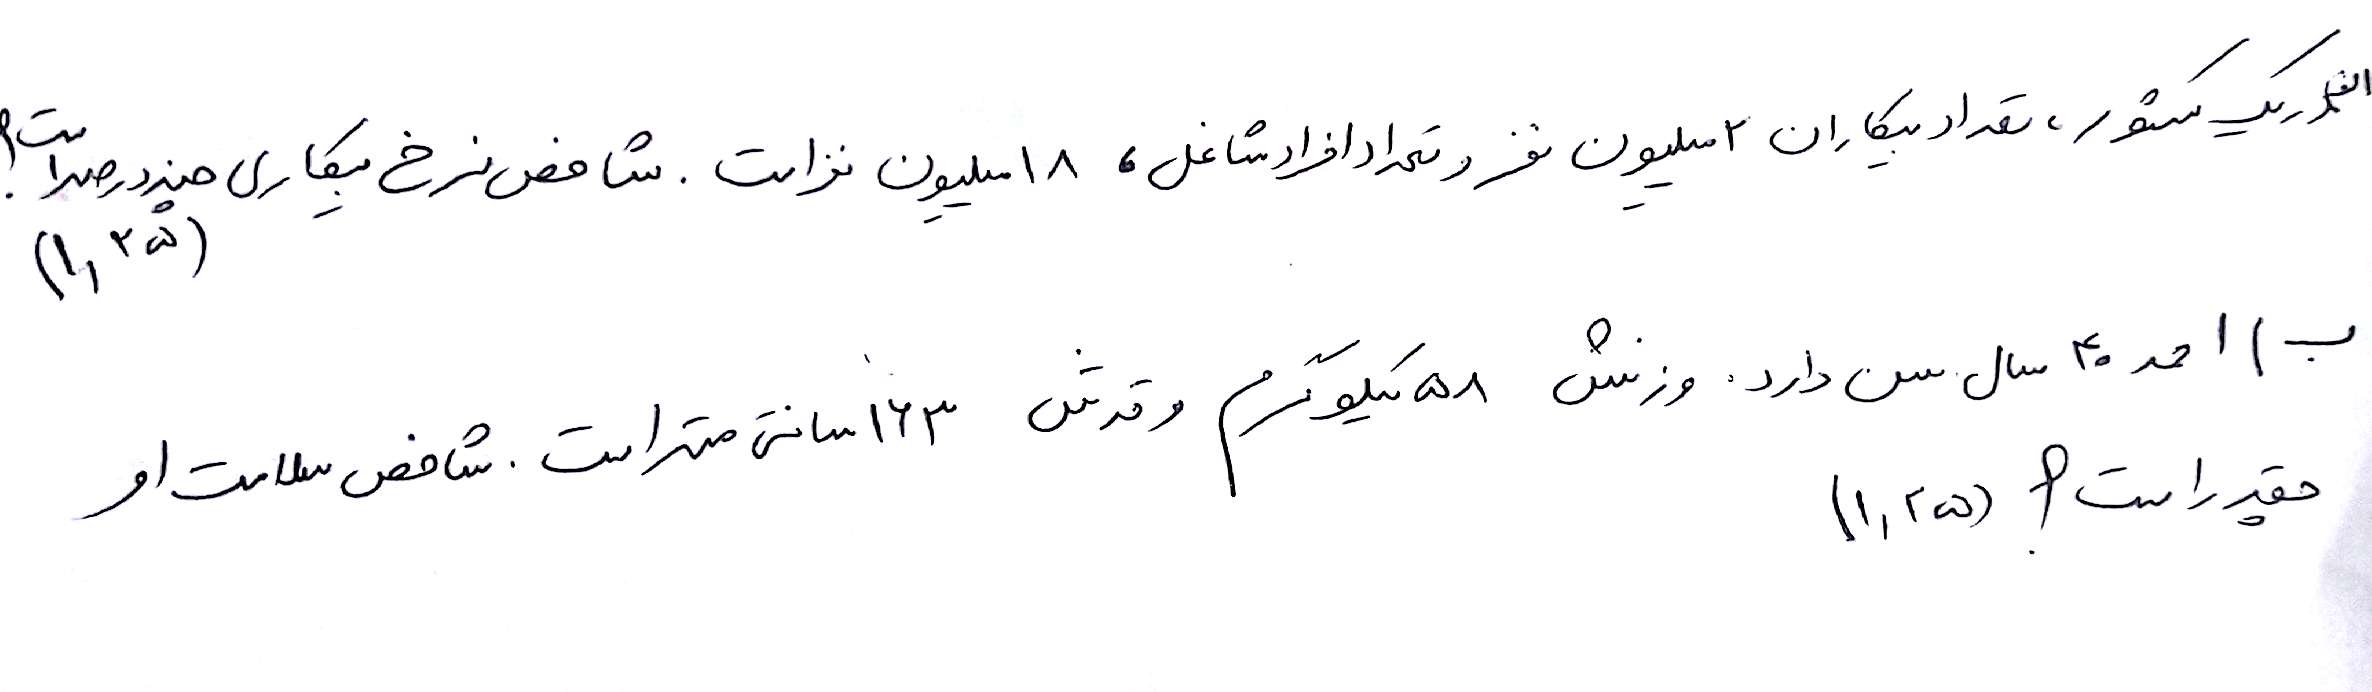 الف) در یک کشور، تعداد بیکاران ۲ میلیون نفر و تعداد افراد شاغل، ۱۸ میلیون نفر است. شاخص نرخ بیکاری چند درصد است؟
(۱,۲۵)
ب) احمد ۴۰ سال سن دارد. وزنش ۵۸ کیلوگرم و قدش ۱۶۳ سانتی متر است. شاخص سلامت او
چقدر است؟ (۱,۲۵)